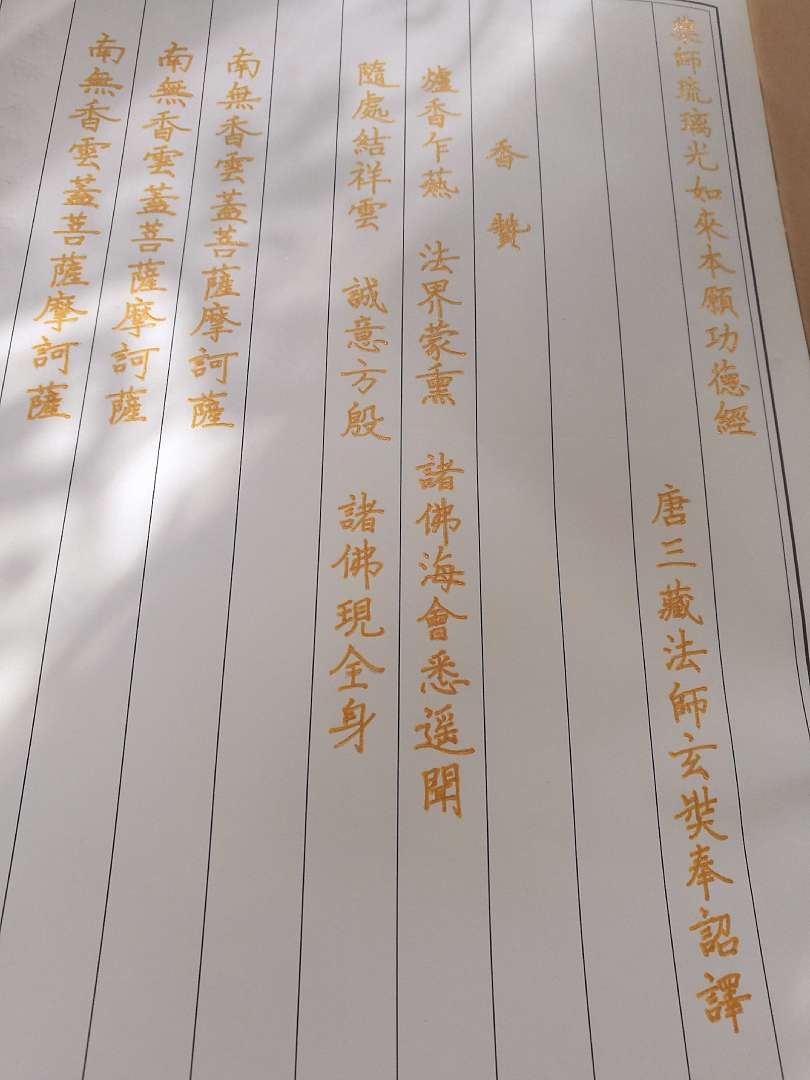 藥師琉璃光如來本願功德經
唐三藏法師玄奘奉詔譯
香贊
爐香乍爇 法界蒙熏 諸佛海會悉遥聞
隨處結祥雲 誠意方殷 諸佛現全身
南無香雲蓋菩薩摩訶薩
南無香雲蓋菩薩摩訶薩
南無香雲蓋菩薩摩訶薩